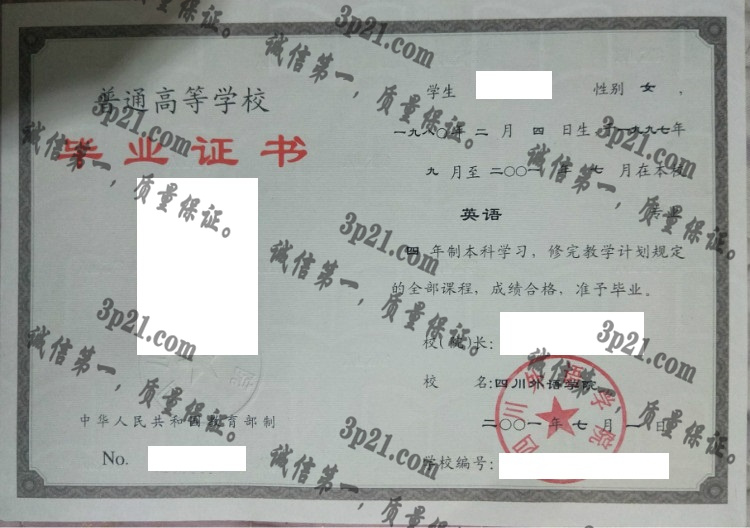 普通高等学校
毕业证书
中华人民共和国教育部制
No.
学生 性别 女 ，
一九八〇年 二 月 四 日生 于一九九七年
九 月至 二〇〇一 年 七 月在本校
英语 专业
四 年制本科学习，修完教学计划规定
的全部课程，成绩合格，准予毕业。
校(院)长:
校 名:四川外语学院
二〇〇一年 七 月 一 日
学校编号:
四川外语学院
3p21.com
诚信第一，质量保证。
3p21.com
诚信第一，质量保证。
3p21.com
诚信第一，质量保证。
3p21.com
诚信第一，质量保证。
3p21.com
诚信第一，质量保证。
3p21.com
诚信第一，质量保证。
3p21.com
诚信第一，质量保证。